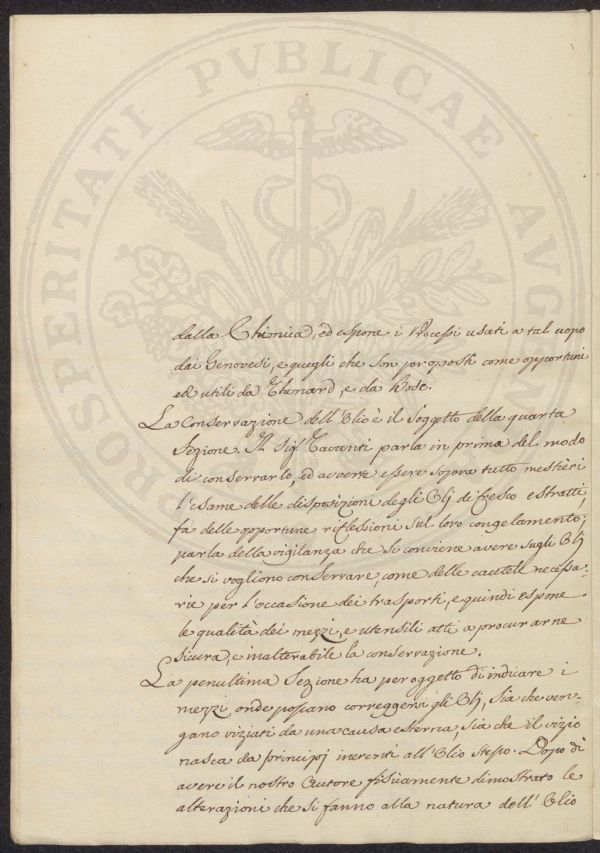 PROSPERITATI PVBLICAE AVGEN
dalla Chimica, ed espone i Processi usati a tal uopo
dai Genovesi, e quegli che son proposti come opportuni
ed utili da Thenard, e da Bosc.
La Conservazione dell'Olio è il soggetto della quarta
Sezione. Il Sig.r Tavanti parla in prima del modo
di conservarlo, ed avverte essere sopra tutto mestieri
l'esame delle disposizioni degli Olj di fresco estratti,
fa delle opportune riflessioni sul loro congelamento;
parla della vigilanza che si conviene avere sugli Olj
che si vogliono conservare, come delle cautele necessa-
rie per l'occasione dei trasporti, e quindi espone
le qualità dei mezzi, e utensili atti a procurarne
sicura, e inalterabile la conservazione.
La penultima Sezione ha per oggetto di indicare i
mezzi onde possano correggersi gli Olj, sia che ven-
gano viziati da una causa esterna, sia che il vizio
nasca da principj inerenti all'Olio stesso. Dopo di
avere il nostro Autore fisicamente dimostrato le
alterazioni che si fanno alla natura dell'Olio